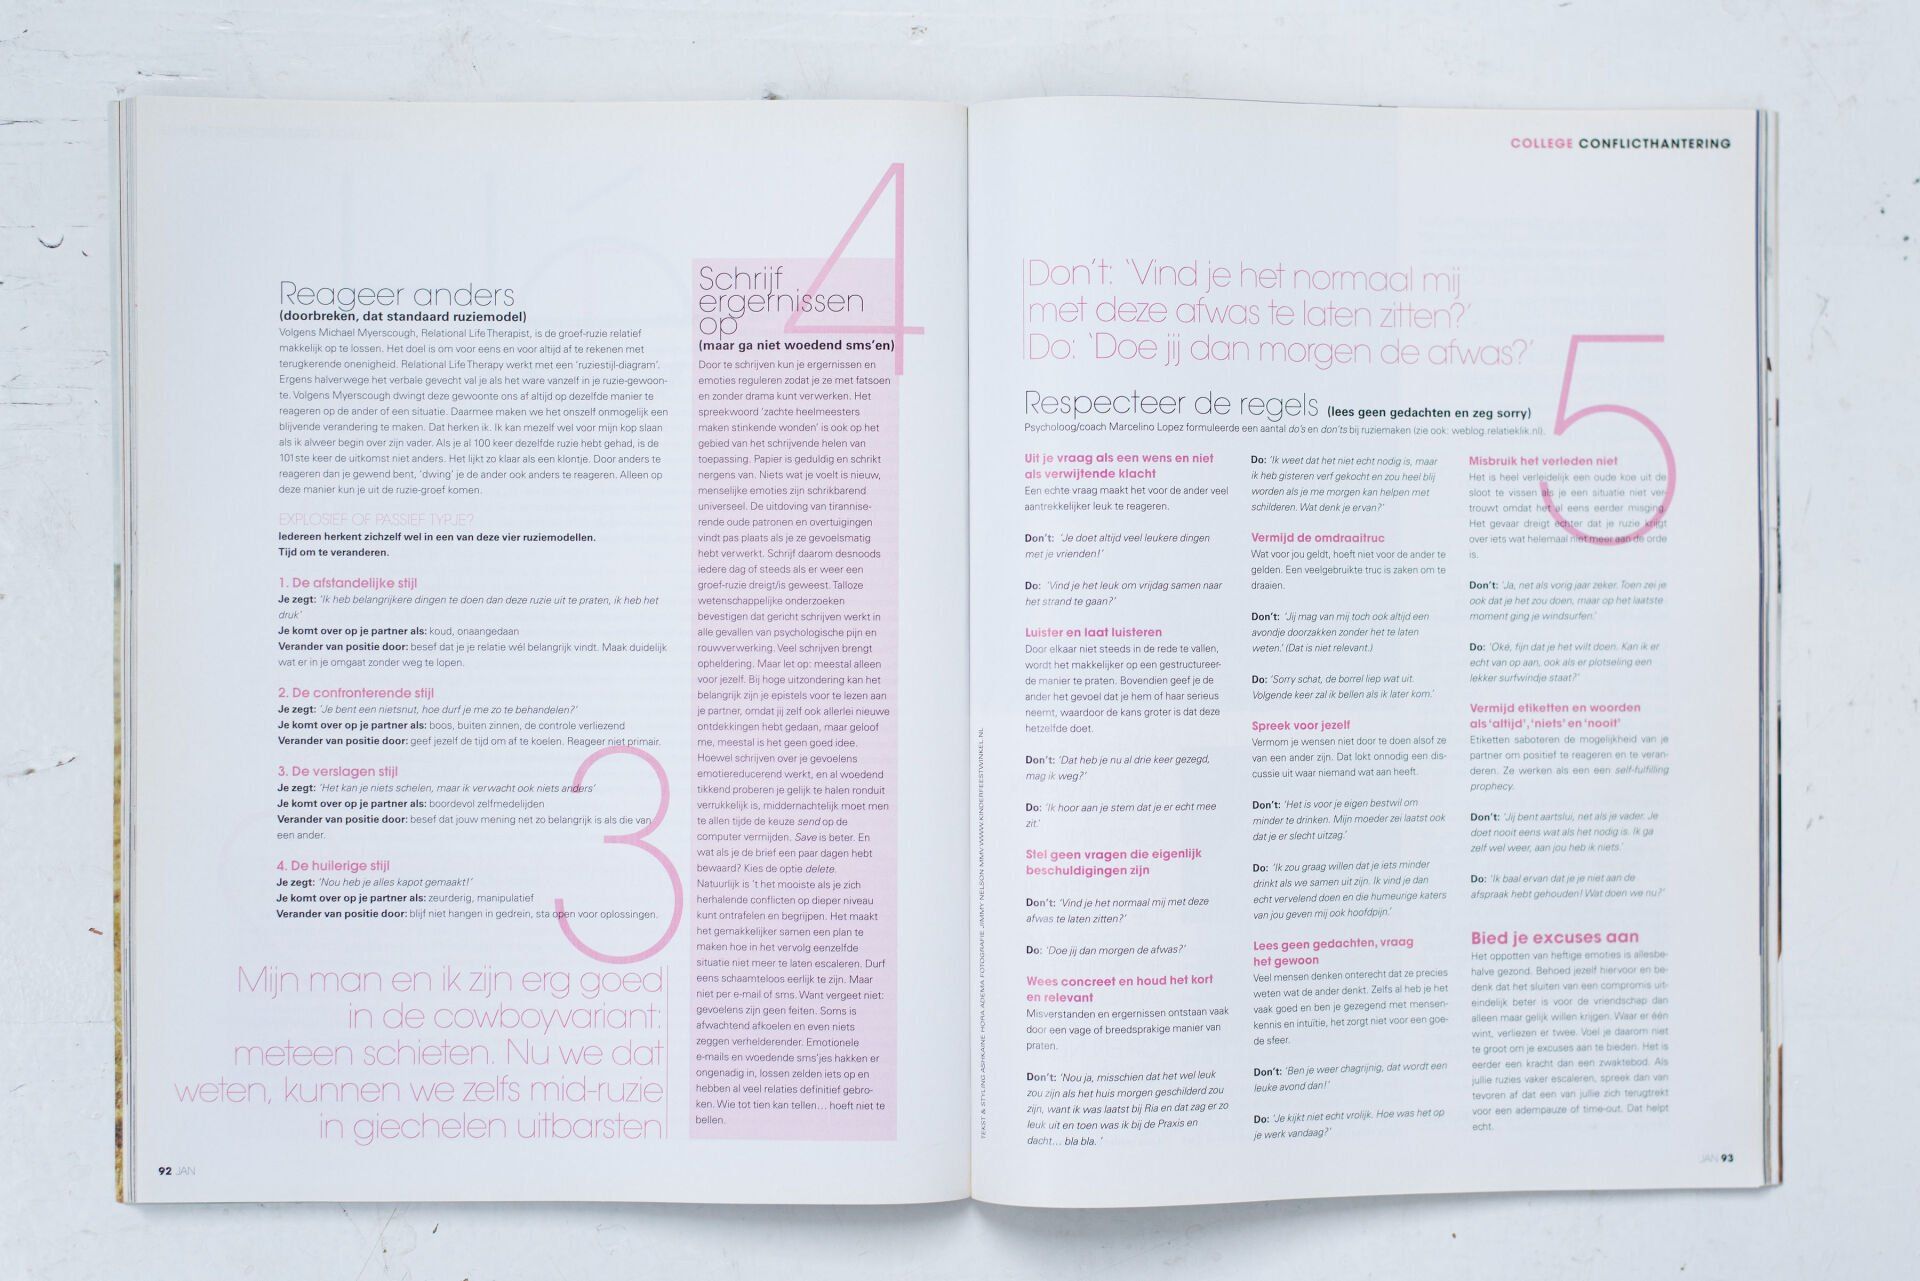 Reageer anders
(doorbreken, dat standaard ruziemodel)
Volgens Michael Myerscough, Relational Life Therapist, is de groef-ruzie relatief
makkelijk op te lossen. Het doel is om voor eens en voor altijd af te rekenen met
terugkerende onenigheid. Relational Life Therapy werkt met een 'ruziestijl-diagram'.
Ergens halverwege het verbale gevecht val je als het ware vanzelf in je ruzie-gewoon-
te. Volgens Myerscough dwingt deze gewoonte ons af altijd op dezelfde manier te
reageren op de ander of een situatie. Daarmee maken we het onszelf onmogelijk een
blijvende verandering te maken. Dat herken ik. Ik kan mezelf wel voor mijn kop slaan
als ik alweer begin over zijn vader. Als je al 100 keer dezelfde ruzie hebt gehad, is de
101ste keer de uitkomst niet anders. Het lijkt zo klaar als een klontje. Door anders te
reageren dan je gewend bent, 'dwing' je de ander ook anders te reageren. Alleen op
deze manier kun je uit de ruzie-groef komen.
EXPLOSIEF OF PASSIEF TYPJE?
Iedereen herkent zichzelf wel in een van deze vier ruziemodellen.
Tijd om te veranderen.
1. De afstandelijke stijl
Je zegt: 'Ik heb belangrijkere dingen te doen dan deze ruzie uit te praten, ik heb het
druk'
Je komt over op je partner als: koud, onaangedaan
Verander van positie door: besef dat je je relatie wél belangrijk vindt. Maak duidelijk
wat er in je omgaat zonder weg te lopen.
2. De confronterende stijl
Je zegt: 'Je bent een nietsnut, hoe durf je me zo te behandelen?'
Je komt over op je partner als: boos, buiten zinnen, de controle verliezend
Verander van positie door: geef jezelf de tijd om af te koelen. Reageer niet primair.
3. De verslagen stijl
Je zegt: 'Het kan je niets schelen, maar ik verwacht ook niets anders'
Je komt over op je partner als: boordevol zelfmedelijden
Verander van positie door: besef dat jouw mening net zo belangrijk is als die van
een ander.
4. De huilerige stijl
Je zegt: 'Nou heb je alles kapot gemaakt!'
Je komt over op je partner als: zeurderig, manipulatief
Verander van positie door: blijf niet hangen in gedrein, sta open voor oplossingen.
3
Mijn man en ik zijn erg goed
in de cowboyvariant:
meteen schieten. Nu we dat
weten, kunnen we zelfs mid-ruzie
in giechelen uitbarsten
92 JAN
4
Schrijf
ergernissen
op
(maar ga niet woedend sms'en)
Door te schrijven kun je ergernissen en
emoties reguleren zodat je ze met fatsoen
en zonder drama kunt verwerken. Het
spreekwoord 'zachte heelmeesters
maken stinkende wonden' is ook op het
gebied van het schrijvende helen van
toepassing. Papier is geduldig en schrikt
nergens van. Niets wat je voelt is nieuw,
menselijke emoties zijn schrikbarend
universeel. De uitdoving van tirannise-
rende oude patronen en overtuigingen
vindt pas plaats als je ze gevoelsmatig
hebt verwerkt. Schrijf daarom desnoods
iedere dag of steeds als er weer een
groef-ruzie dreigt/is geweest. Talloze
wetenschappelijke onderzoeken
bevestigen dat gericht schrijven werkt in
alle gevallen van psychologische pijn en
rouwverwerking. Veel schrijven brengt
opheldering. Maar let op: meestal alleen
voor jezelf. Bij hoge uitzondering kan het
belangrijk zijn je epistels voor te lezen aan
je partner, omdat jij zelf ook allerlei nieuwe
ontdekkingen hebt gedaan, maar geloof
me, meestal is het geen goed idee.
Hoewel schrijven over je gevoelens
emotiereducerend werkt, en al woedend
tikkend proberen je gelijk te halen ronduit
verrukkelijk is, middernachtelijk moet men
te allen tijde de keuze send op de
computer vermijden. Save is beter. En
wat als je de brief een paar dagen hebt
bewaard? Kies de optie delete.
Natuurlijk is 't het mooiste als je zich
herhalende conflicten op dieper niveau
kunt ontrafelen en begrijpen. Het maakt
het gemakkelijker samen een plan te
maken hoe in het vervolg eenzelfde
situatie niet meer te laten escaleren. Durf
eens schaamteloos eerlijk te zijn. Maar
niet per e-mail of sms. Want vergeet niet:
gevoelens zijn geen feiten. Soms is
afwachtend afkoelen en even niets
zeggen verhelderender. Emotionele
e-mails en woedende sms'jes hakken er
ongenadig in, lossen zelden iets op en
hebben al veel relaties definitief gebro-
ken. Wie tot tien kan tellen... hoeft niet te
bellen.
COLLEGE CONFLICTHANTERING
Don't: 'Vind je het normaal mij
met deze afwas te laten zitten?'
Do: 'Doe jij dan morgen de afwas?'
5
Respecteer de regels (lees geen gedachten en zeg sorry)
Psycholoog/coach Marcelino Lopez formuleerde een aantal do's en don'ts bij ruziemaken (zie ook: weblog.relatieklik.nl).
Uit je vraag als een wens en niet
als verwijtende klacht
Een echte vraag maakt het voor de ander veel
aantrekkelijker leuk te reageren.
Don't: 'Je doet altijd veel leukere dingen
met je vrienden!'
Do: 'Vind je het leuk om vrijdag samen naar
het strand te gaan?'
Luister en laat luisteren
Door elkaar niet steeds in de rede te vallen,
wordt het makkelijker op een gestructureer-
de manier te praten. Bovendien geef je de
ander het gevoel dat je hem of haar serieus
neemt, waardoor de kans groter is dat deze
hetzelfde doet.
Don't: 'Dat heb je nu al drie keer gezegd,
mag ik weg?'
Do: 'Ik hoor aan je stem dat je er echt mee
zit.'
Stel geen vragen die eigenlijk
beschuldigingen zijn
Don't: 'Vind je het normaal mij met deze
afwas te laten zitten?'
Do: 'Doe jij dan morgen de afwas?'
Wees concreet en houd het kort
en relevant
Misverstanden en ergernissen ontstaan vaak
door een vage of breedsprakige manier van
praten.
Don't: 'Nou ja, misschien dat het wel leuk
zou zijn als het huis morgen geschilderd zou
zijn, want ik was laatst bij Ria en dat zag er zo
leuk uit en toen was ik bij de Praxis en
dacht... bla bla. '
Do: 'Ik weet dat het niet echt nodig is, maar
ik heb gisteren verf gekocht en zou heel blij
worden als je me morgen kan helpen met
schilderen. Wat denk je ervan?'
Vermijd de omdraaitruc
Wat voor jou geldt, hoeft niet voor de ander te
gelden. Een veelgebruikte truc is zaken om te
draaien.
Don't: 'Jij mag van mij toch ook altijd een
avondje doorzakken zonder het te laten
weten.' (Dat is niet relevant.)
Do: 'Sorry schat, de borrel liep wat uit.
Volgende keer zal ik bellen als ik later kom.'
Spreek voor jezelf
Vermom je wensen niet door te doen alsof ze
van een ander zijn. Dat lokt onnodig een dis-
cussie uit waar niemand wat aan heeft.
Don't: 'Het is voor je eigen bestwil om
minder te drinken. Mijn moeder zei laatst ook
dat je er slecht uitzag.'
Do: 'Ik zou graag willen dat je iets minder
drinkt als we samen uit zijn. Ik vind je dan
echt vervelend doen en die humeurige katers
van jou geven mij ook hoofdpijn.'
Lees geen gedachten, vraag
het gewoon
Veel mensen denken onterecht dat ze precies
weten wat de ander denkt. Zelfs al heb je het
vaak goed en ben je gezegend met mensen-
kennis en intuïtie, het zorgt niet voor een goe-
de sfeer.
Don't: 'Ben je weer chagrijnig, dat wordt een
leuke avond dan!'
Do: 'Je kijkt niet echt vrolijk. Hoe was het op
je werk vandaag?'
Misbruik het verleden niet
Het is heel verleidelijk een oude koe uit de
sloot te vissen als je een situatie niet ver-
trouwt omdat het al eens eerder misging.
Het gevaar dreigt echter dat je ruzie krijgt
over iets wat helemaal niet meer aan de orde
is.
Don't: 'Ja, net als vorig jaar zeker. Toen zei je
ook dat je het zou doen, maar op het laatste
moment ging je windsurfen.'
Do: 'Oké, fijn dat je het wilt doen. Kan ik er
echt van op aan, ook als er plotseling een
lekker surfwindje staat?'
Vermijd etiketten en woorden
als 'altijd', 'niets' en 'nooit'
Etiketten saboteren de mogelijkheid van je
partner om positief te reageren en te veran-
deren. Ze werken als een een self-fulfilling
prophecy.
Don't: 'Jij bent aartslui, net als je vader. Je
doet nooit eens wat als het nodig is. Ik ga
zelf wel weer, aan jou heb ik niets.'
Do: 'Ik baal ervan dat je je niet aan de
afspraak hebt gehouden! Wat doen we nu?'
Bied je excuses aan
Het oppotten van heftige emoties is allesbe-
halve gezond. Behoed jezelf hiervoor en be-
denk dat het sluiten van een compromis uit-
eindelijk beter is voor de vriendschap dan
alleen maar gelijk willen krijgen. Waar er één
wint, verliezen er twee. Voel je daarom niet
te groot om je excuses aan te bieden. Het is
eerder een kracht dan een zwaktebod. Als
jullie ruzies vaker escaleren, spreek dan van
tevoren af dat een van jullie zich terugtrekt
voor een adempauze of time-out. Dat helpt
echt.
TEKST & STYLING ASHKAINE HORA ADEMA FOTOGRAFIE JIMMY NELSON MMV WWW.KINDERFEESTWINKEL.NL
JAN 93